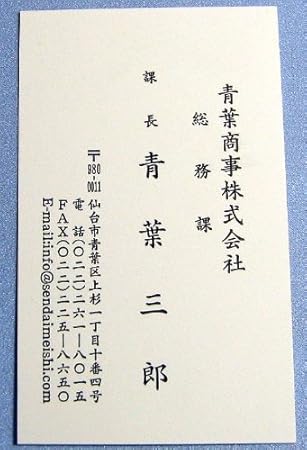 青葉商事株式会社
総務課
課長 青葉三郎
〒980-0011 仙台市青葉区上杉一丁目十番四号
電話(〇二二)二六一―八〇一五
FAX(〇二二)二二五―八六五〇
E-mail:info@sendaimeishi.com